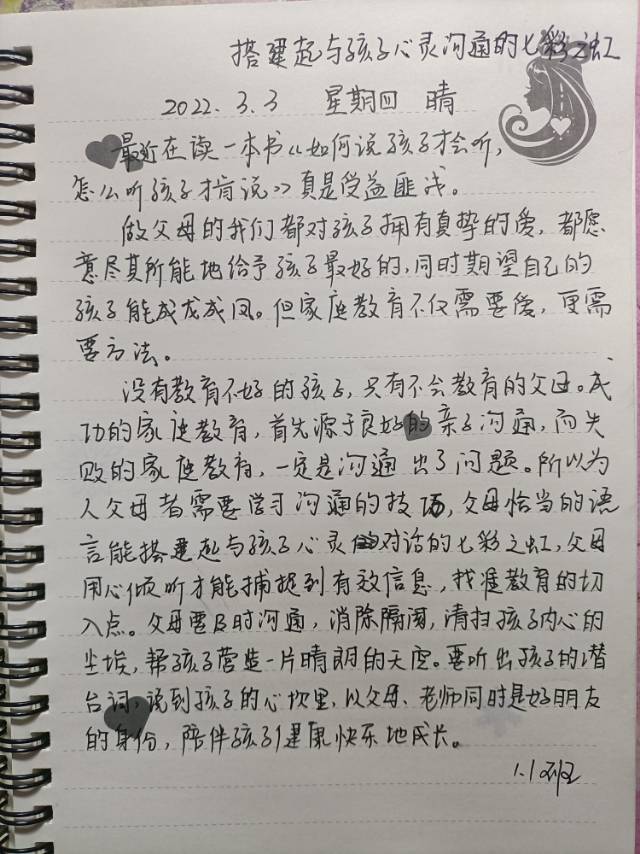 搭建起与孩子心灵沟通的七彩之虹
2022.3.3 星期四 晴
最近在读一本书《如何说孩子才会听,
怎么听孩子才肯说》真是受益匪浅。
做父母的我们都对孩子拥有真挚的爱,都愿
意尽其所能地给予孩子最好的,同时期望自己的
孩子能成龙成凤。但家庭教育不仅需要爱,更需
要方法。
没有教育不好的孩子,只有不会教育的父母。成
功的家庭教育,首先源于良好的亲子沟通,而失
败的家庭教育,一定是沟通出了问题。所以为
人父母者需要学习沟通的技巧,父母恰当的语
言能搭建起与孩子心灵对话的七彩之虹,父母
用心倾听才能捕捉到有效信息,找准教育的切
入点。父母要及时沟通,消除隔阂,清扫孩子内心的
尘埃,帮孩子营造一片晴朗的天空。要听出孩子的潜
台词,说到孩子的心坎里,以父母、老师同时是好朋友
的身份,陪伴孩子健康快乐地成长。
1.1班